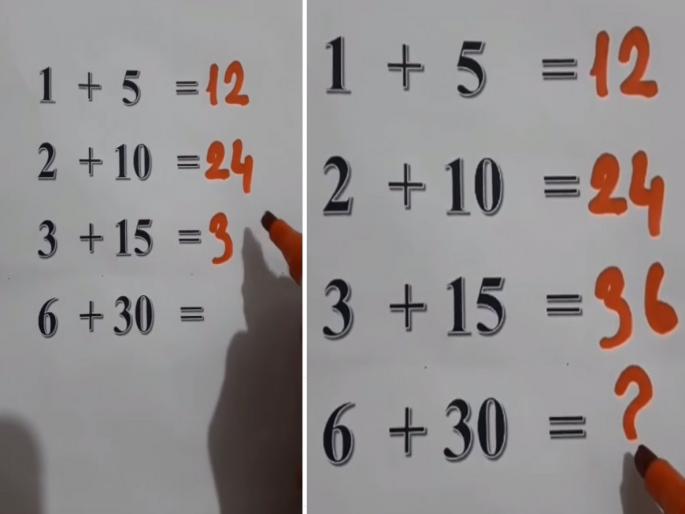 1 + 5 = 12
2 + 10 = 24
3 + 15 = 3
6 + 30 =
1 + 5 = 12
2 + 10 = 24
3 + 15 = 36
6 + 30 = ?